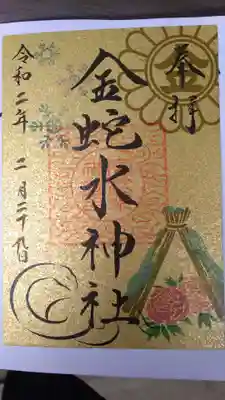 奉拝
金蛇水神社
令和二年 二月二十九日